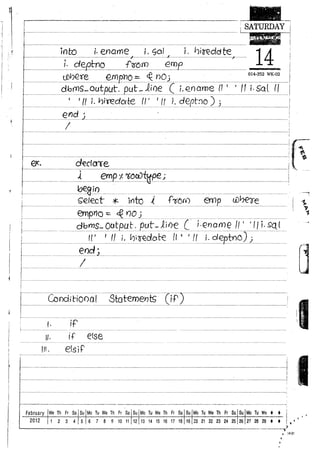 SATURDAY
14
014-352 WK-02
into i.ename, i.sal, i.hiredate,
i.deptno from emp
where empno = &no;
dbms_output.put_line (i.ename ||' '|| i.sal ||
' '|| i.hiredate ||' '|| i.deptno);
end;
/
ex. declare
i emp%rowtype;
begin
select * into i from emp where
empno = &no;
dbms_output.put_line (i.ename ||' '|| i.sal
||' '|| i.hiredate ||' '|| i.deptno);
end;
/
Conditional Statements (if)
I. if
II. if else
III. elsif
FEB
MAR
February We Th Fr Sa Su Mo Tu We Th Fr Sa Su Mo Tu We Th Fr Sa Su Mo Tu We Th Fr Sa Su Mo Tu We
2012 1 2 3 4 5 6 7 8 9 10 11 12 13 14 15 16 17 18 19 20 21 22 23 24 25 26 27 28 29